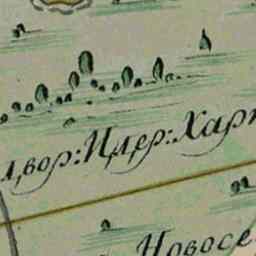 двор: И цер: Хар
Новосе